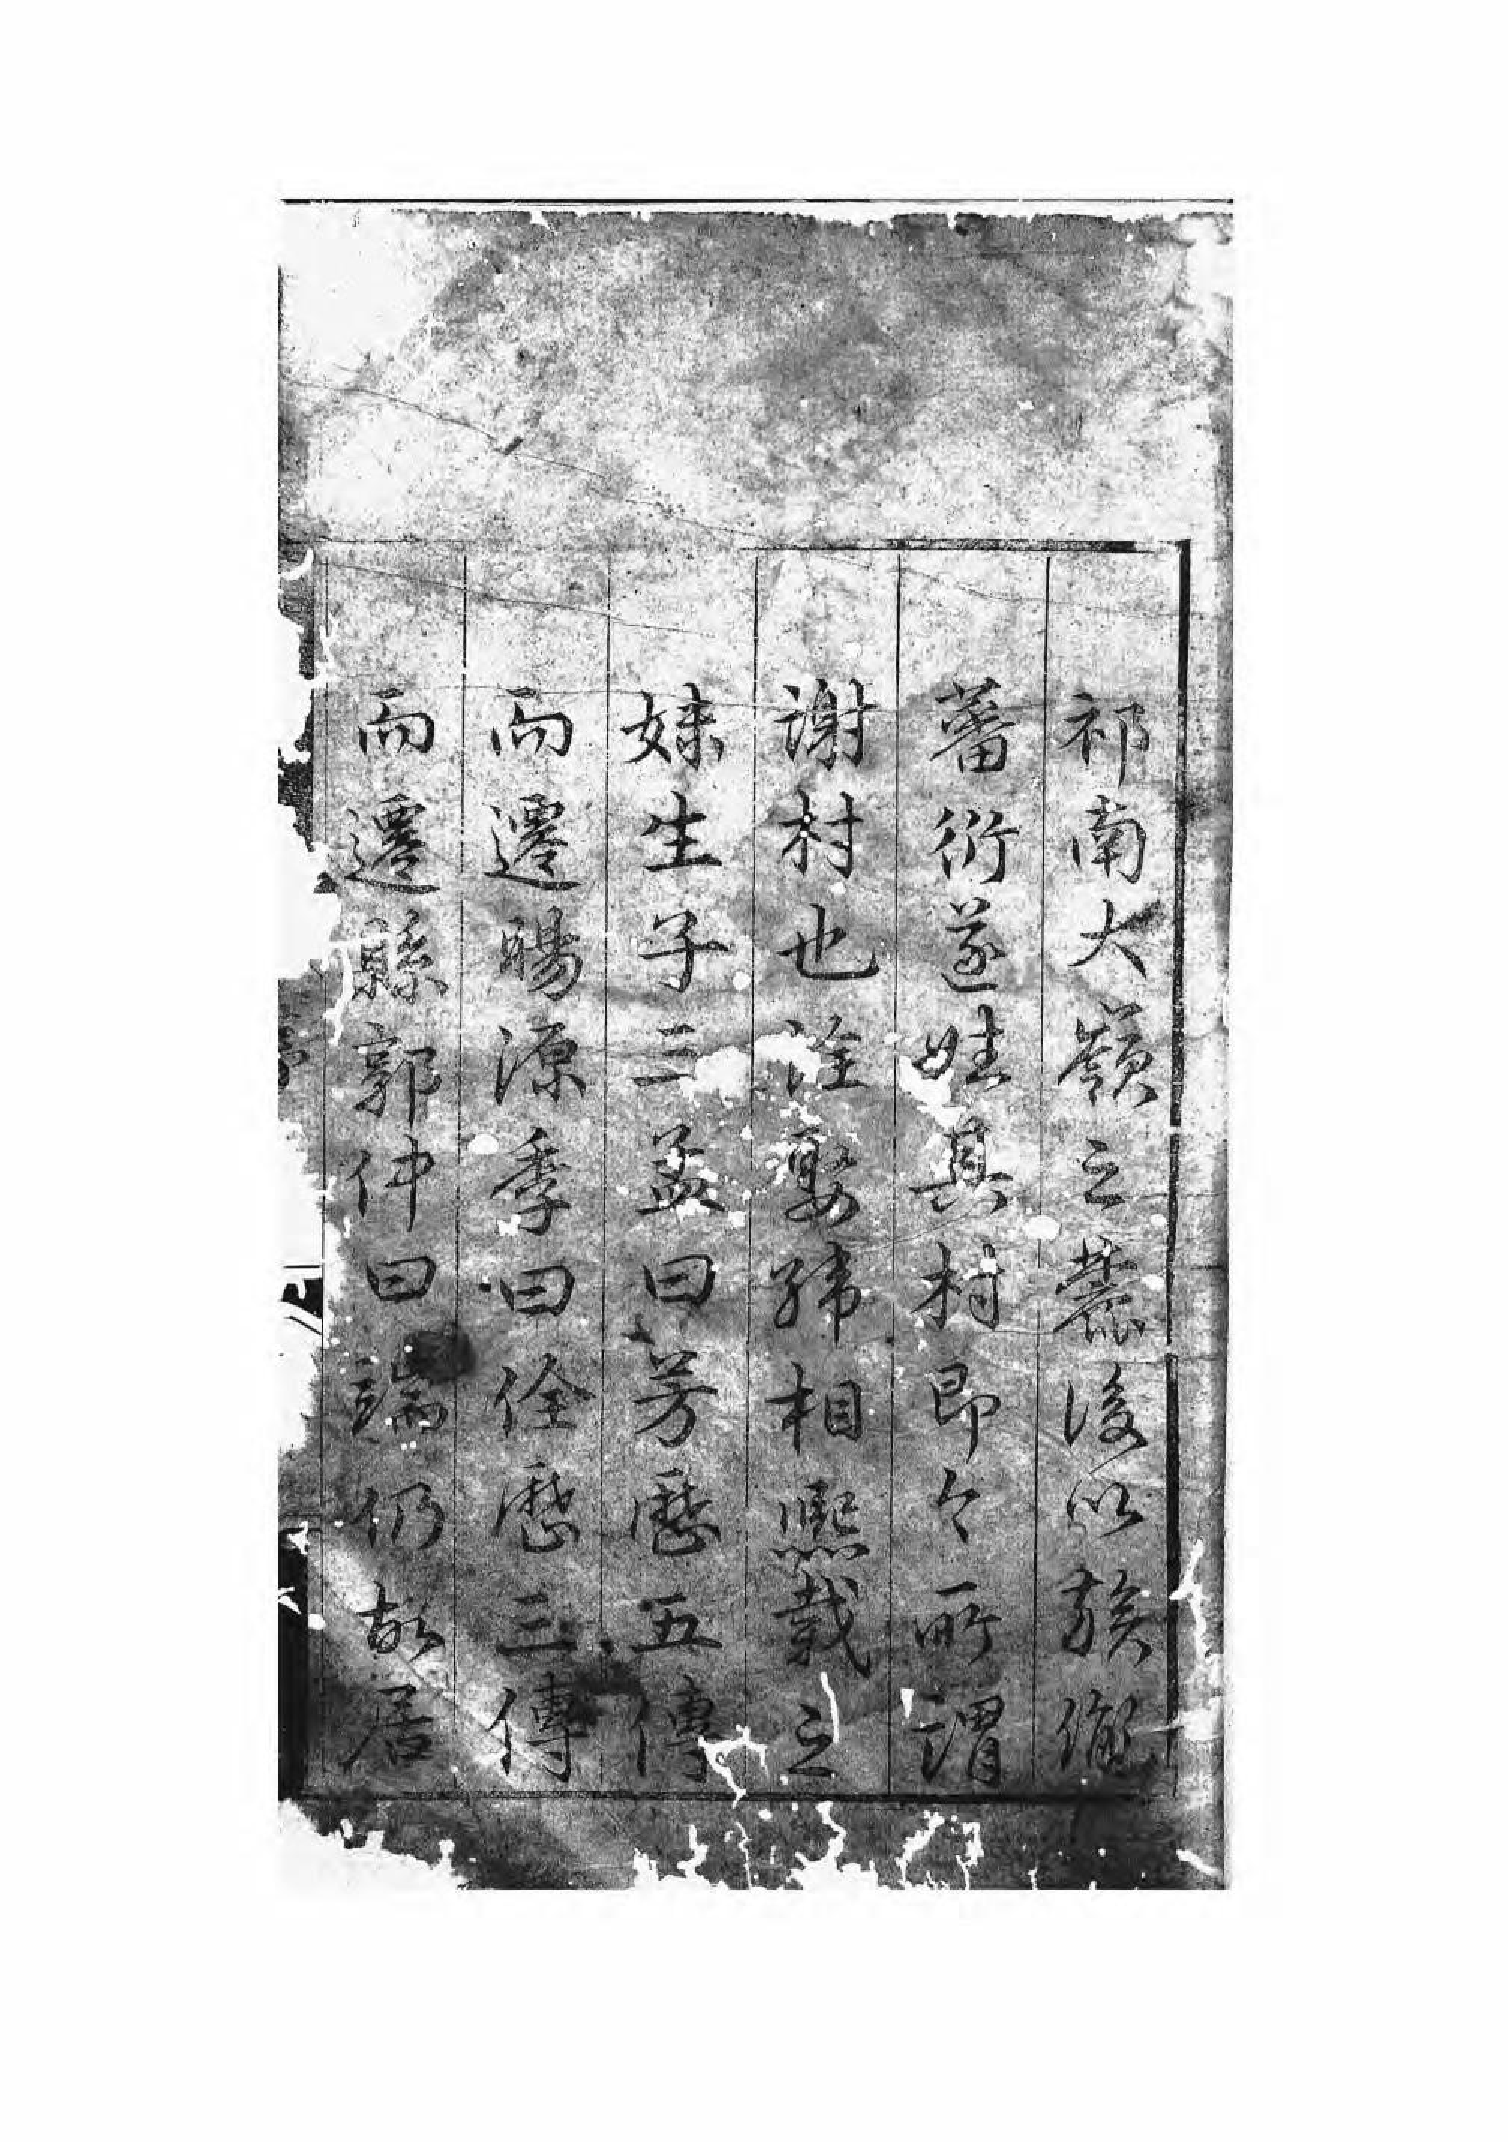 祁南大嶺之麓後以族繼
蕃衍遂姓其村即今所謂
謝村也詮娶緯相熙載之
妹生子三孟曰芳歷五傳
而遷暘源季曰佺歷三傳
而遷縣郭仲曰端仍故居